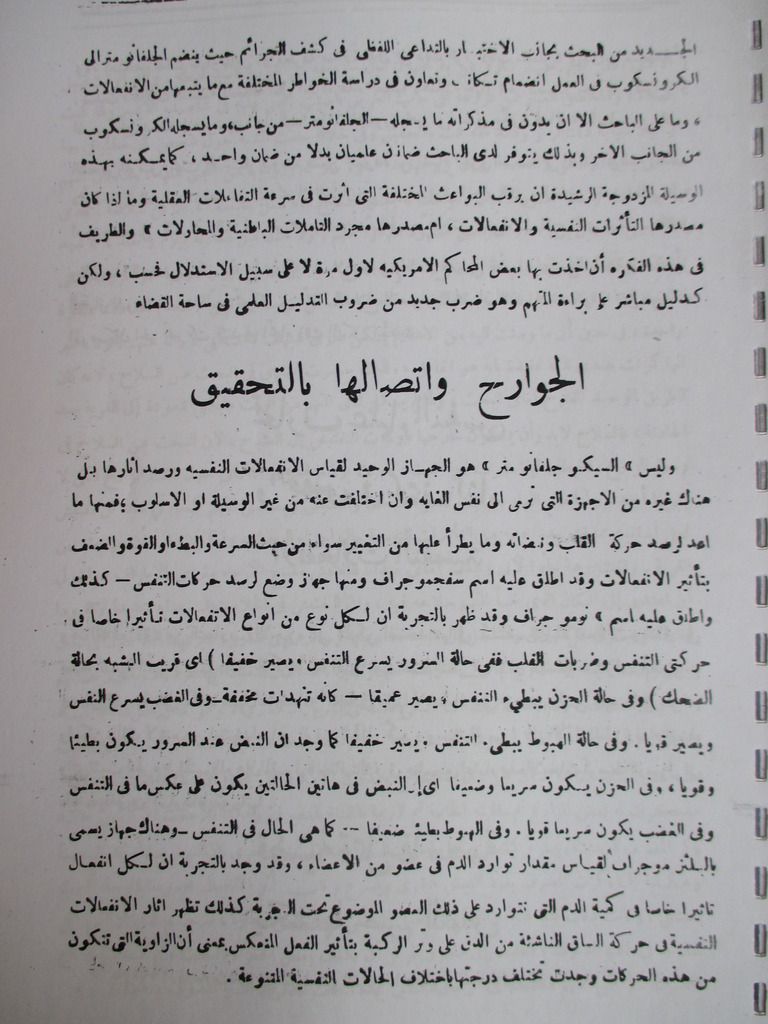 الجديد من البحث بجانب الاختبار بالتداعى اللفظى فى كشف الجرائم حيث ينضم الجلفانو مترالى
الكرونسكوب فى العمل انضمام تكاتف وتعاون فى دراسة الخواطر المختلفة مع ما يتبعها من الانفعالات
، وما على الباحث الا ان يدون فى مذكراته ما يسجله – الجلفانومتر – من جانب، وما يسجله الكرونسكوب
من الجانب الاخر وبذلك يتوفر لدى الباحث ضمانان علميان بدلا من ضمان واحد ، كما يمكنه بهذه
الوسيلة المزدوجة الرشيدة ان يرقب البواعث المختلفة التى اثرت فى سرعة التفاعلات العقلية وما اذا كان
مصدرها التأثرات النفسية والانفعالات ، ام مصدرها مجرد التاملات الباطنية والمحاولات » والطريف
فى هذه الفكره أن اخذت بها بعض المحاكم الامريكيه لاول مرة لا على سبيل الاستدلال فحسب ، ولكن
كدليل مباشر على براءة المتهم وهو ضرب جديد من ضروب التدليل العلمى فى ساحة القضاء
الجوارح واتصالها بالتحقيق
وليس » السيكو جلفانو متر » هو الجهاز الوحيد لقياس الانفعالات النفسيه ورصد اثارها بل
هناك غيره من الاجهزة التى ترمى الى نفس الغايه وان اختلفت عنه من غير الوسيلة او الاسلوب فمنها ما
اعد لرصد حركة القلب ونبضاته وما يطرأ عليها من التغيير سواء من حيث السرعة والبطء او القوة والضعف
بتأثير الانفعالات وقد اطلق عليه اسم سفجموجراف ومنها جهاز وضع لرصد حركات التنفس – كذلك
واطلق عليه اسم » نومو جراف وقد ظهر بالتجربة ان لكل نوع من انواع الانفعالات تأثيرا خاصا فى
حركتى التنفس وضربات القلب ففى حالة السرور يسرع التنفس ويصير خفيفا ) اى قريب الشبه بحالة
الضحك ) وفى حالة الحزن يبطىء التنفس ويصير عميقا – كانه تنهدات مخففة – وفى الغضب يسرع النفس
ويصير قويا . وفى حالة الهبوط يبطىء التنفس ويصير خفيفا كما وجد ان النبض عند السرور يكون بطيئا
وقويا ، وفى الحزن يكون سريعا وضعيفا اى ان النبض فى هاتين الحالتين يكون على عكس ما فى التنفس
وفى الغضب يكون سريعا قويا . وفى الهبوط بطيئا ضعيفا -- كما هى الحال فى التنفس – وهناك جهاز يسمى
بالبلتز موجراف لقياس مقدار توارد الدم فى عضو من الاعضاء ، وقد وجد بالتجربة ان لكل انفعال
تاثيرا خاصا فى كمية الدم التى تتوارد على ذلك العضو الموضوع تحت التجربة كذلك تظهر اثار الانفعالات
النفسية فى حركة الساق الناشئة من الدق على وتر الركبة بتأثير الفعل المنعكس بمعنى أن الزاوية التى تتكون
من هذه الحركات وجدت تختلف درجتها باختلاف الحالات النفسية المتنوعة .